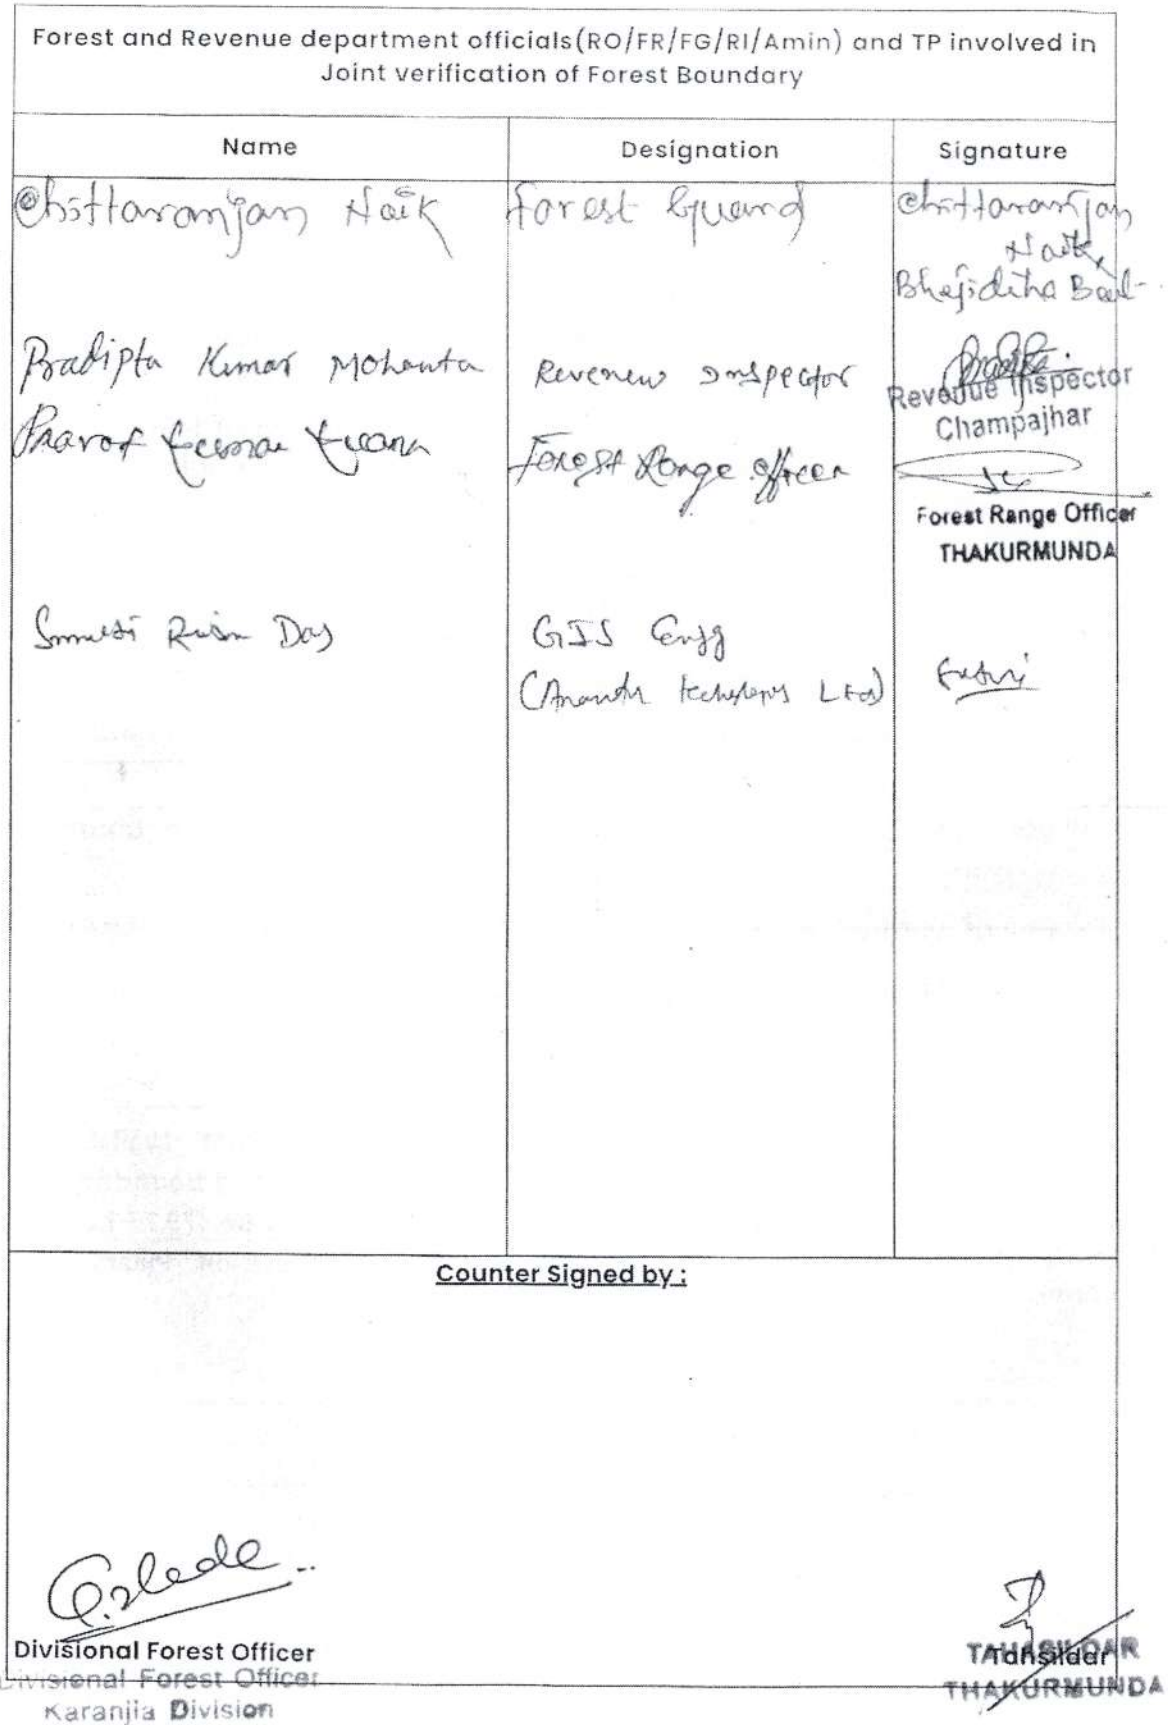 Forest and Revenue department officials(RO/FR/FG/RI/Amin) and TP involved in
Joint verification of Forest Boundary
Name Designation Signature
Chittaranjan Naik Forest Guard Chittaranjan
Naik,
Bhejidiha Beat
Pradipta Kumar Mohanta Revenew Inspector
Revenue Inspector
Champajhar
Kumar Forest Range officer
Forest Range Officer
THAKURMUNDA
Das GIS Engg
(Ananth Ltd)
Counter Signed by :
Divisional Forest Officer
Divisional Forest Officer
Karanjia Division
Tahsildar
TAHASILDAR
THAKURMUNDA